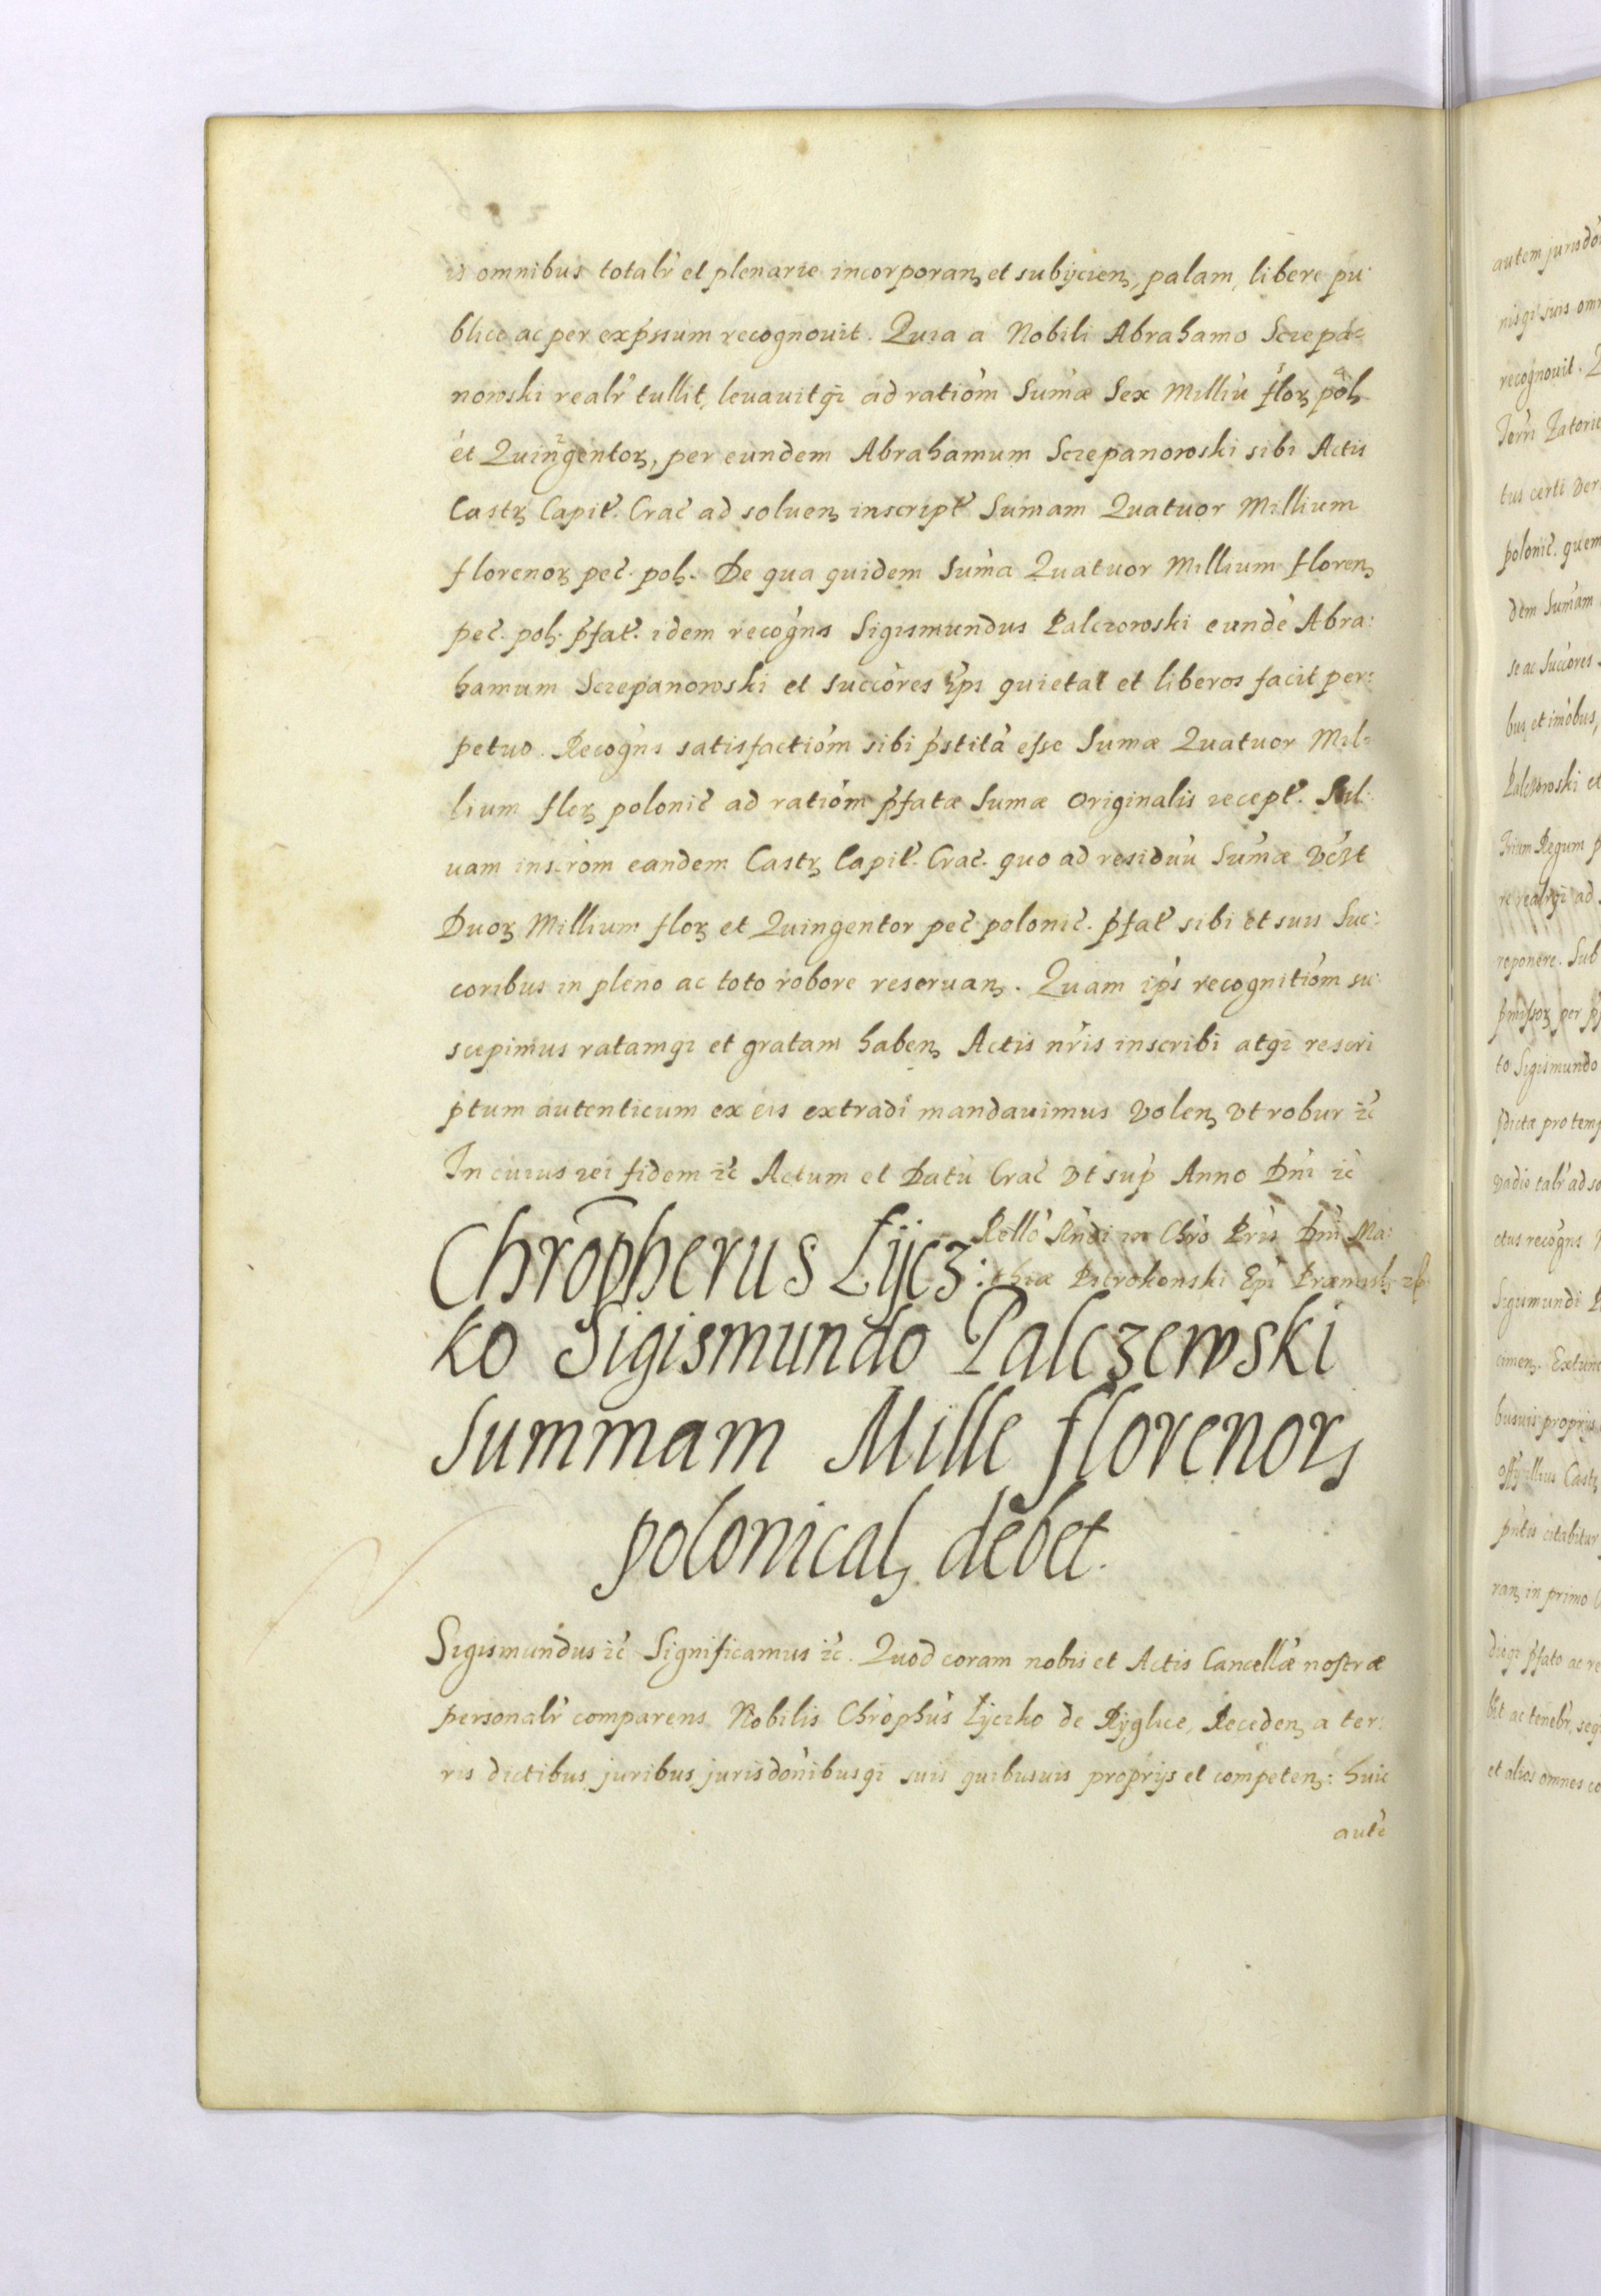 is omnibus totalr̃ et plenarie incorporanꝫ et subijcienꝫ, palam, libere pu
blice ac per exp̃ssum recognouit. Quia a Nobili Abrahamo Sczepa=
nowski realr̃ tullit, leuauitqꝫ ad ratiõm Sum̃æ Sex Milliũ florꝫ polꝫ
et Quingentorꝫ, per eundem Abrahamum Sczepanowski sibi Actis
Castrꝫ Capit̃. Crac̃ ad soluenꝫ inscript̃ Sum̃am Quatuor Millium
florenorꝫ pec̃. polꝫ. De qua quidem Sum̃a Quatuor Millium florenꝫ
pec̃. polꝫ. p̃fat̃. idem recog̃ns Sigismundus Palczowski eundẽ Abra:
hamum Sczepanowski et succõres ip̃s quietat et liberos facit per:
petuo. Recog̃ns satisfactiõm sibi p̃stitã esse Sumæ Quatuor Mil=
lium florꝫ polonic̃ ad ratiõm p̃fatæ Sumæ originalis recept̃. Sal:
uam inscrõm eandem Castrꝫ Capit̃. Crac̃. quo ad residuũ Sum̃æ vcꝫt
Duorꝫ Millium florꝫ et Quingentor pec̃ polonic̃. p̃fat̃ sibi et suis Suc:
coribus in pleno ac toto robore reseruanꝫ. Quam ip̃s recognitiõm su:
scepimus ratamqꝫ et gratam habenꝫ Actis nr̃is inscribi atqꝫ rescri
ptum autenticum ex eis extradi mandauimus volenꝫ vt robur ꝛc̃
In cuius rei fidem ꝛc̃ Actum et Datũ Crac̃ vt sup̃ Anno Dnĩ ꝛc̃
Rellõ Rñdi in Chrõ Pris Dnĩ Ma:
thiæ Pstrokonski Epĩ Præmislꝫ
Chrõpherus Łÿcz:
ko Sigismundo Palczewski
summam Mille florenorꝫ
polonicalꝫ debet.
Sigismundus ꝛc̃ Significamus ꝛc̃. Quod coram nobis et Actis Cancellæ̃ nostræ
personalr̃ comparens Nobilis Chrõphũs Łÿczko de Rÿglice, Recedenꝫ a ter:
ris dictibus juribus jurisdõnibusqꝫ suis quibusuis proprijs et competenꝫ: huic
autẽ